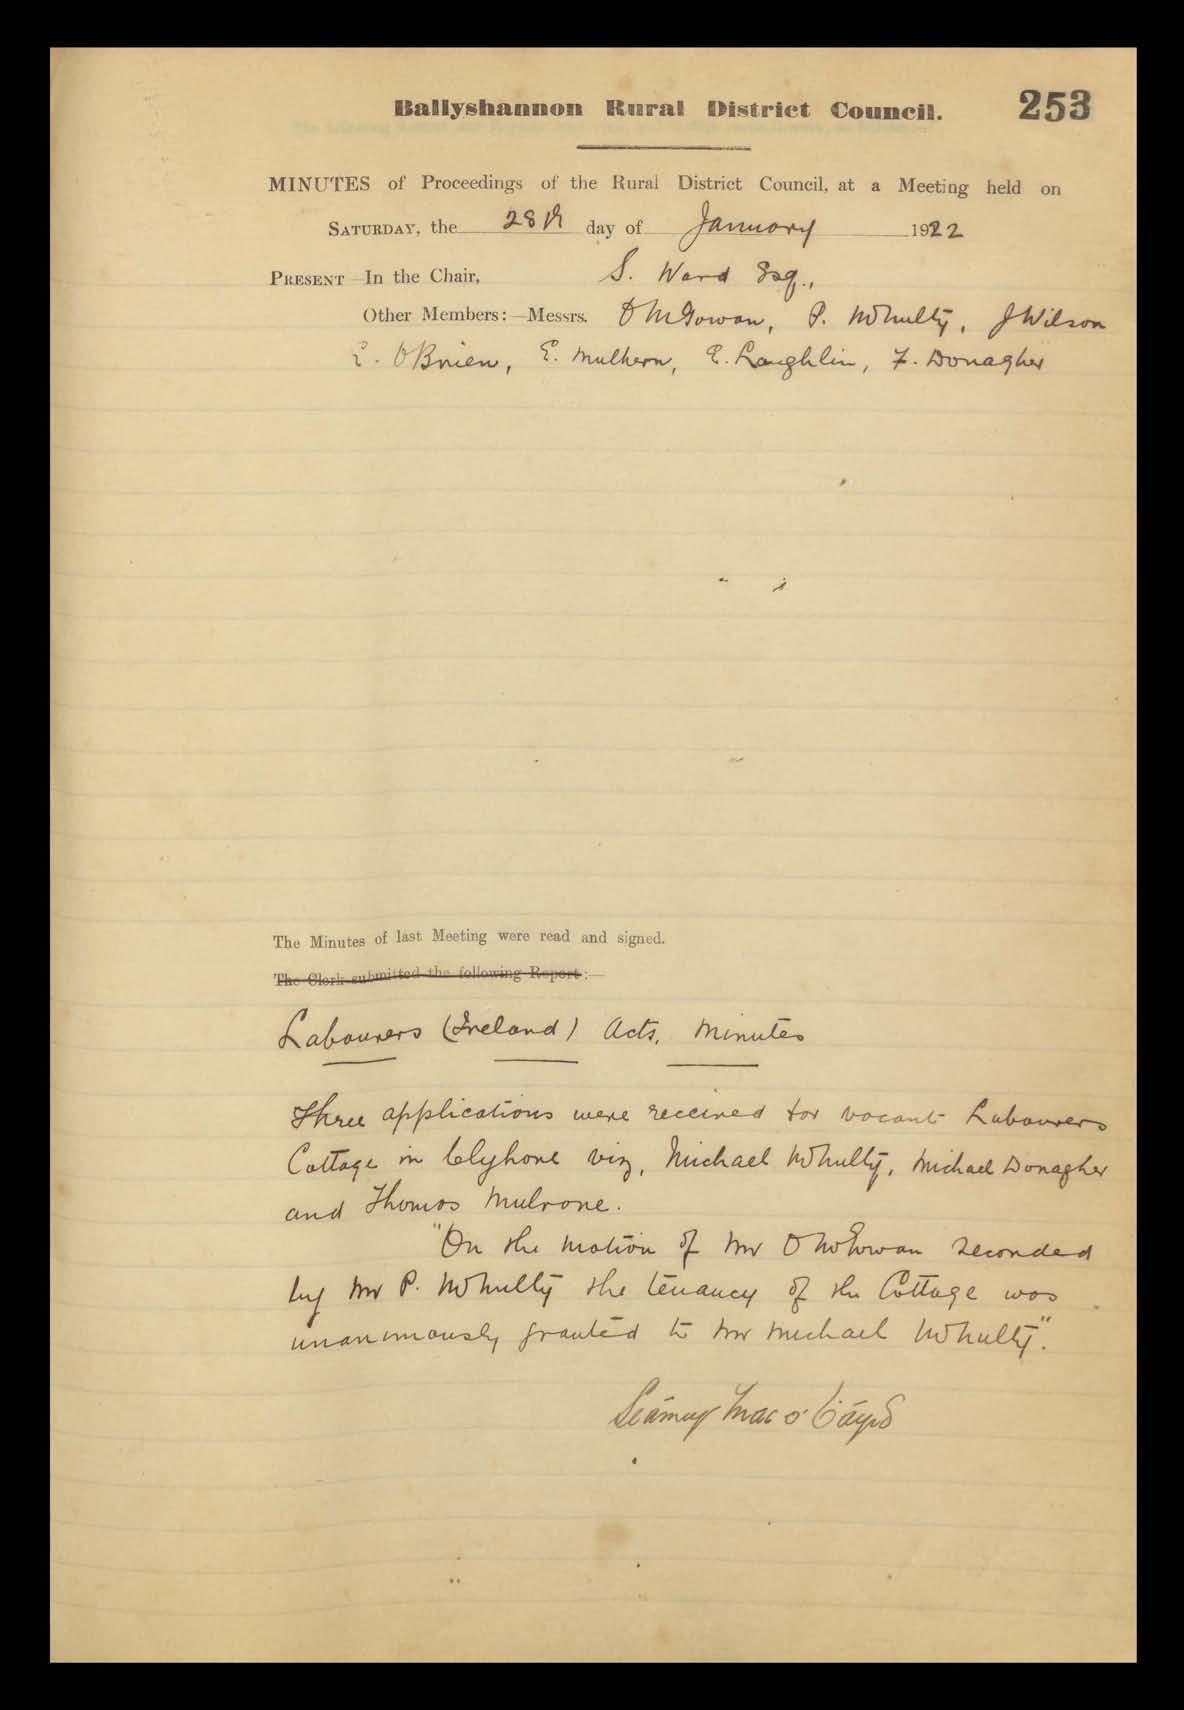 Ballyshannon Rural District Council. 253
MINUTES of Proceedings of the Rural District Council, at a Meeting held on
SATURDAY, the 28th day of January 1922
PRESENT—In the Chair, S. Ward Esq.,
Other Members:—Messrs. D McGowan, P. McNulty, J Wilson
E. O'Brien, E. Mulhern, E. Loughlin, F. Donagher
The Minutes of last Meeting were read and signed.
The Clerk submitted the following Report:—
Labourers (Ireland) Acts, Minutes
Three applications were received for vacant Labourers
Cottage in Clyhore viz, Michael McNulty, Michael Donagher
and Thomas Mulrone.
"On the motion of Mr D McGowan seconded
by Mr P. McNulty the tenancy of the Cottage was
unanimously granted to Mr Michael McNulty".
Séamus Mac